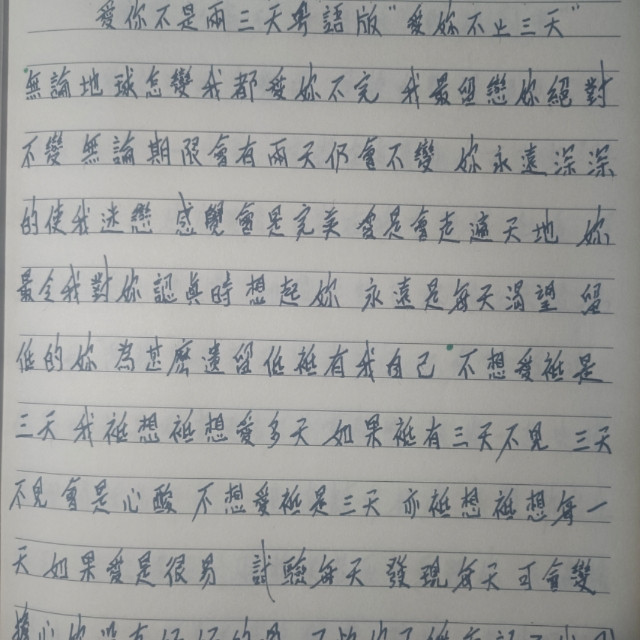 愛你不是兩三天粵語版"愛妳不止三天"
無論地球怎變我都愛妳不完 我最留戀妳絕對
不變 無論期限會有兩天仍會不變 妳永遠深深
的使我迷戀 感覺會是完美 愛是會走遍天地 妳
最令我對妳認真時想起妳 永遠是每天渴望 留
低的妳 為甚麼遺留低祗有我自己 不想愛祗是
三天 我祗想祗想愛多天 如果祗有三天不見 三天
不見 會是心酸 不想愛祗是三天 亦祗想祗想每一
天 如果愛是很易 試驗每天 發現每天可會變